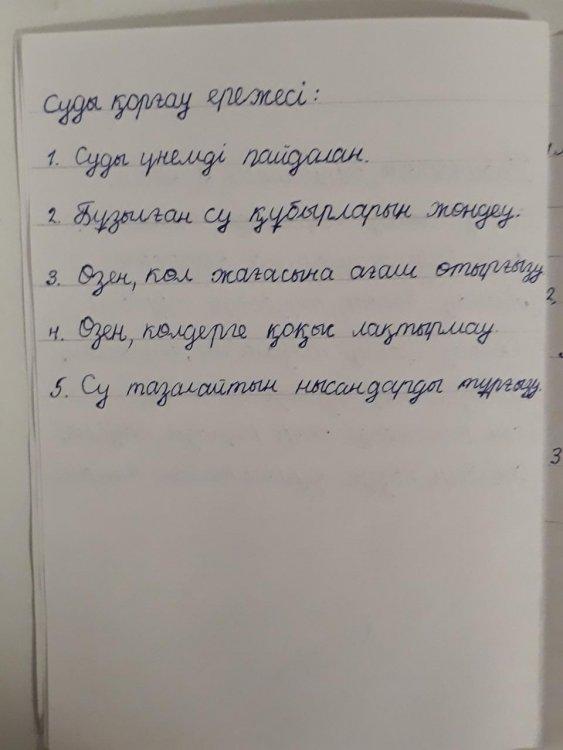 Суды қорғау ережесі:
1. Суды үнемді пайдалан.
2. Бұзылған су құбырларын жөндеу.
3. Өзен, көл жағасына ағаш отырғызу
4. Өзен, көлдерге қоқыс лақтырмау.
5. Су тазалайтын нысандарды тұрғызу.
2,
3